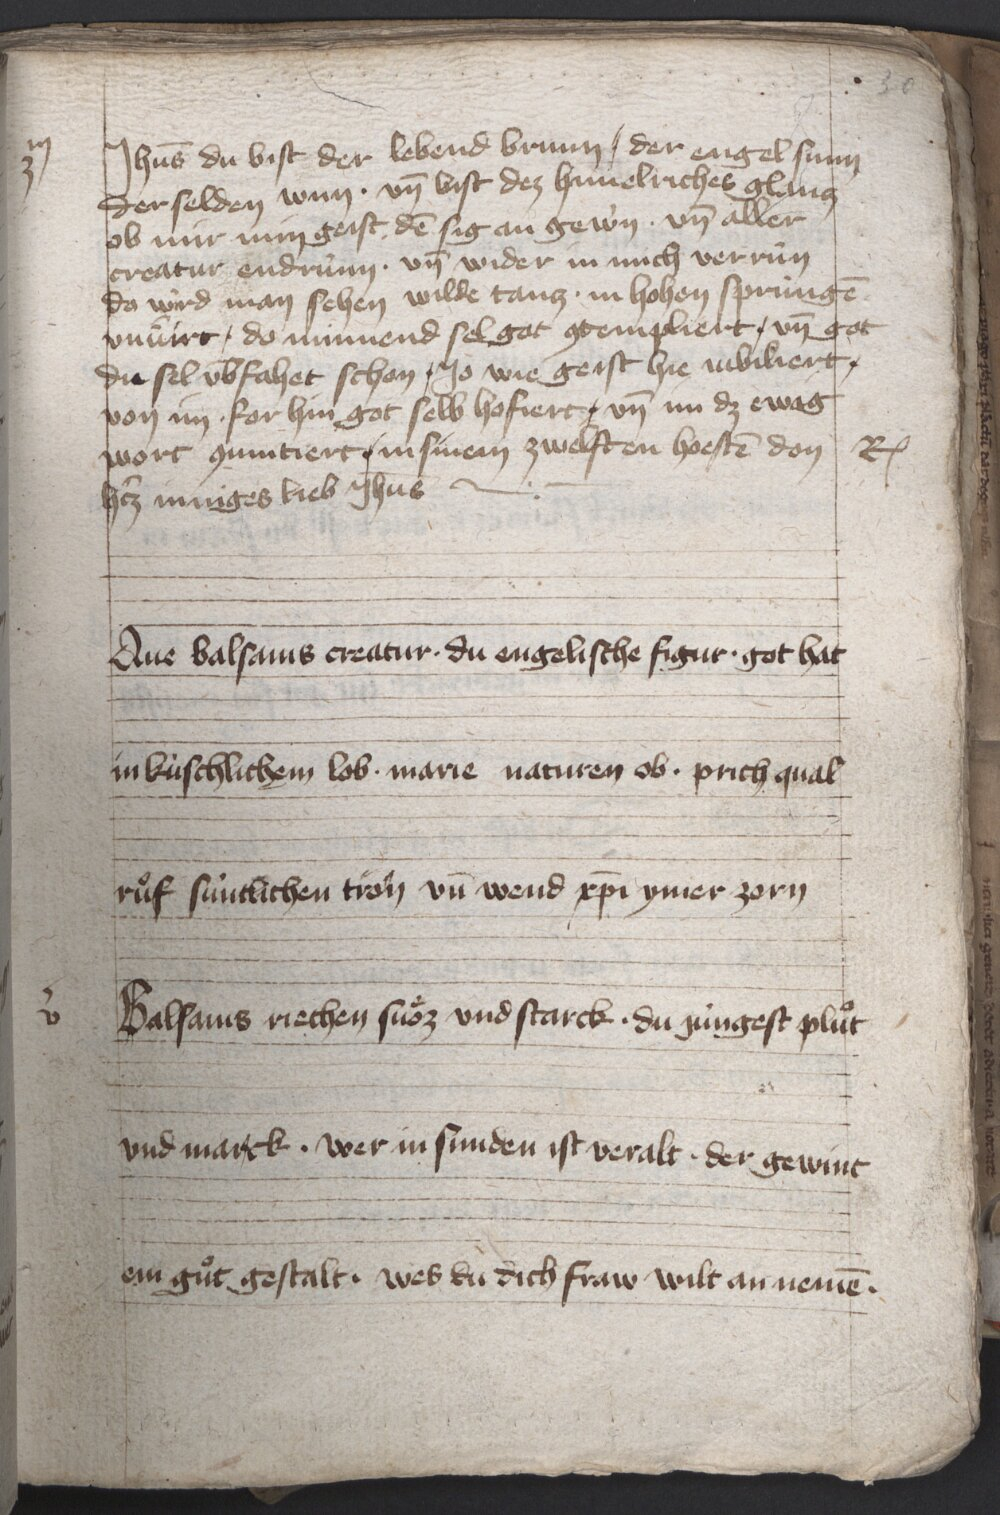 30
Jhus̄ du bist der lebend brunn / der engel sunn
Der selden wun · vn̄ bist dez himelriches glantz
ob mir min geist dē sig an gewin · vn̄ aller
creatur endrunn · vn̄ wider in mich verrun
do wird man sehen wilde tantz · in hohen sprungē
do minnend sel got 9templiert / vn̄ got
du sel vb̄fahet schon / Jo wie geist hie iubiliert /
von im · for hin got selb hofiert / vn̄ im dz ewig
wort quintiert / in sinem zwelften hoestē don R
hͬtz iniges lieb Jhus̄
Aue balsams creatur · du engelische figur · got hat
in kuschlichem lob · marie naturen ob · prich qual
ruͦf suntlichen tron vn̄ wend xp̄i ymer zorn
Balsams riechen suͦz vnd starck · du jungest pluͦt
vnd marck · wer in sunden ist veralt · der gewint
ein guͦt gestalt · wes du dich fraw wilt an nemē ·